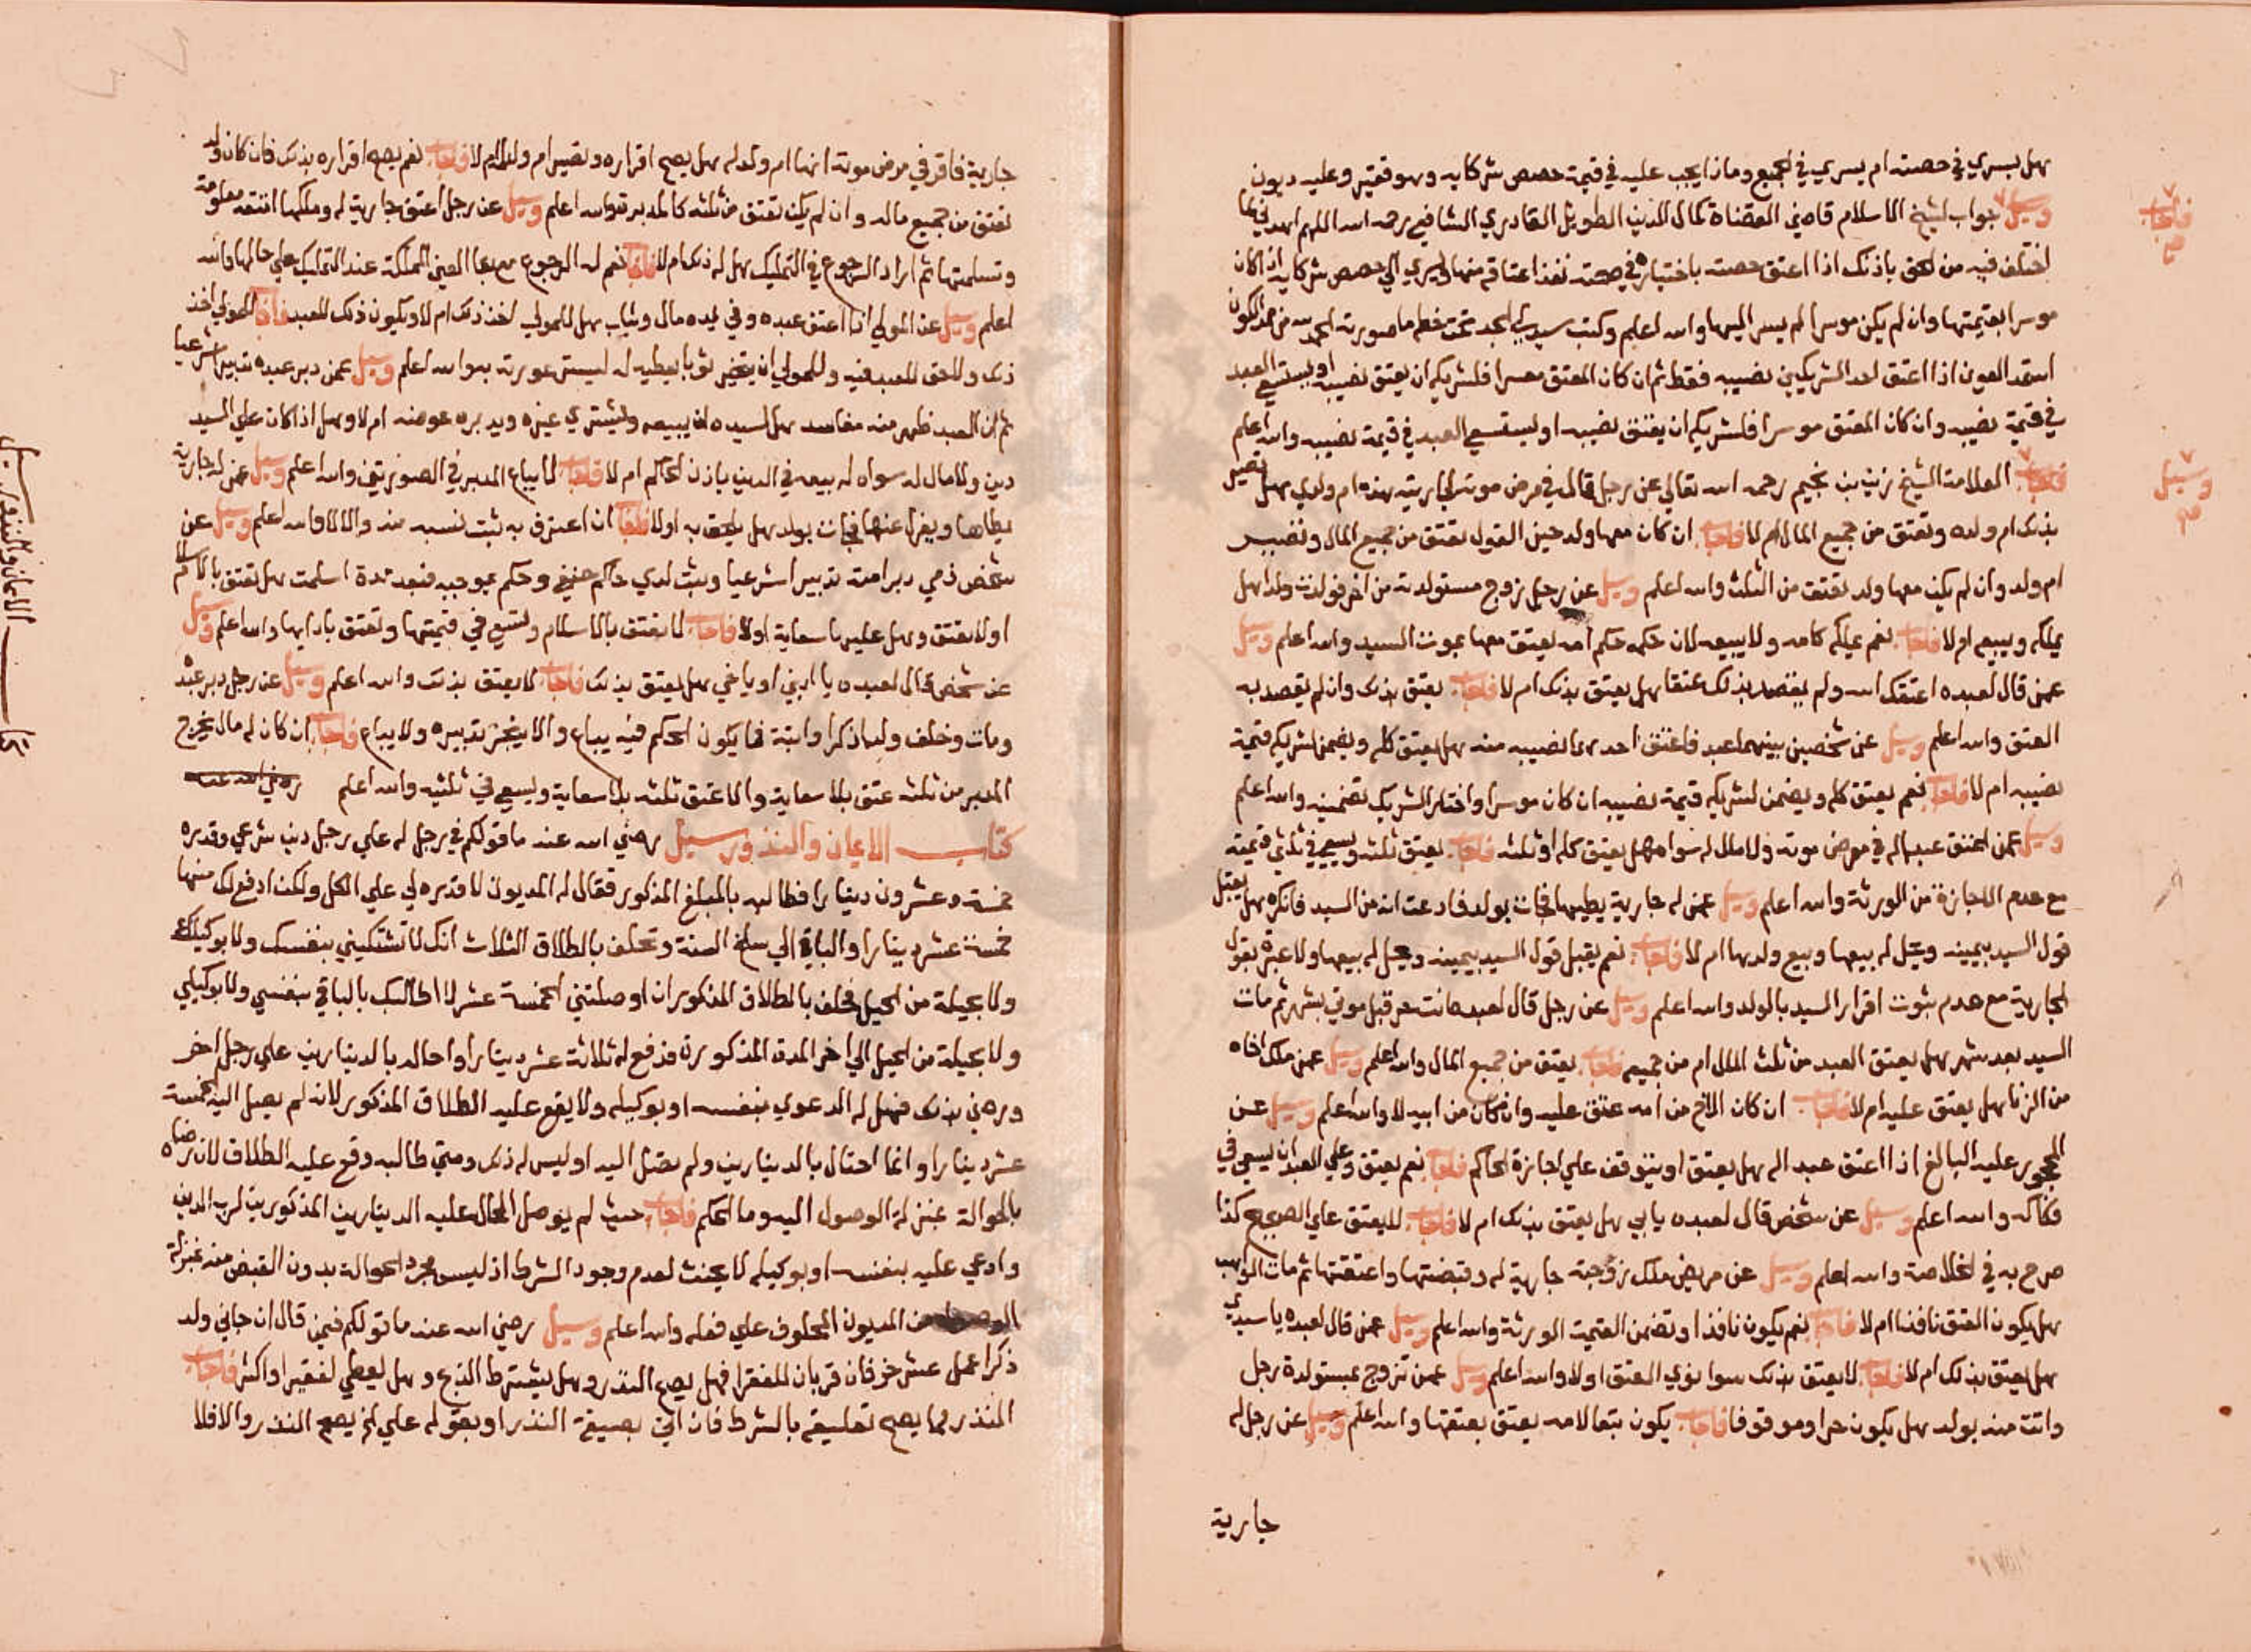 هل يسري في حصته ام يسري في الجميع وماذا يجب عليه في قيمة حصص شركايه وهو فقير وعليه ديون
وسيل جواب لشيخ الاسلام قاضي القضاة كمال الدين الطويل القادري الشافعي رحمه الله اللهم اهدني لما
اختلف فيه من الحق باذنك اذا اعتق حصته باختياره في صحته نفذ اعتاقه منها ويسري الي حصص شركايه اذا كان
موسرا بقيمتها وان لم يكن موسرا لم يسر اليها والله اعلم وكتب سيدي الجد تحت خطه ما صورته الحمد لله من ممد الكون
استمد العون اذا اعتق احد الشريكين نصيبه فقط ثم ان كان المعتق معسرا فلشريكه ان يعتق نصيبه او يستسعي العبد
في قيمة نصيبه وان كان المعتق موسرا فلشريكه ان يعتق نصيبه او يستسعي العبد في قيمة نصيبه والله اعلم
فاجاب العلامة الشيخ زين بن نجيم رحمه الله تعالي عن رجل قال في مرض موته لجاريته هذه ام ولدي هل تصير
بذلك ام ولده وتعتق من جميع المال ام لا فاجاب ان كان معها ولد حين القول تعتق من جميع المال وتصير
ام ولد وان لم يكن معها ولد تعتق من الثلث والله اعلم وسيل عن رجل زوج مستولدته من اخر فولدت ولدا هل
يملكه ويبيعه او لا فاجاب نعم يملكه كامه ولا يبيعه لان حكمه حكم امه يعتق معها بموت السيد والله اعلم وسيل
عمن قال لعبده اعتقك الله ولم يقصد بذلك عتقا هل يعتق بذلك ام لا فاجاب يعتق بذلك وان لم يقصد به
العتق والله اعلم وسيل عن شخصين بينهما عبد فاعتق احدهما نصيبه منه هل يعتق كله ويضمن لشريكه قيمة
نصيبه ام لا فاجاب نعم يعتق كله ويضمن لشريكه قيمة نصيبه ان كان موسرا واختار الشريك تضمينه والله اعلم
وسيل عمن اعتق عبدا له في مرض موته ولا مال له سواه هل يعتق كله او ثلثه فاجاب يعتق ثلثه ويسعي في ثلثي قيمته
مع عدم الاجازة من الورثة والله اعلم وسيل عمن له جارية يطيها فجات بولد فادعت انه من السيد فانكره هل يقبل
قول السيد بيمينه ويحل له بيعها وبيع ولدها ام لا فاجاب نعم يقبل قول السيد بيمينه ويحل له بيعها ولا عبرة بقول
الجارية مع عدم ثبوت اقرار السيد بالولد والله اعلم وسيل عن رجل قال لعبده انت حر قبل موتي بشهر ثم مات
السيد بعد شهر هل يعتق العبد من ثلث المال ام من جميعه فاجاب يعتق من جميع المال والله اعلم وسيل عمن ملك اخاه
من الزنا هل يعتق عليه ام لا فاجاب ان كان الاخ من امه عتق عليه وان كان من ابيه لا والله اعلم وسيل عن
المحجور عليه البالغ اذا اعتق عبدا له هل يعتق او يتوقف علي اجازة الحاكم فاجاب نعم يعتق وعلي العبد ان يسعي في
فكاكه والله اعلم وسيل عن شخص قال لعبده يا ابي هل يعتق بذلك ام لا فاجاب لا يعتق علي الصحيح كذا
صرح به في الخلاصة والله اعلم وسيل عن مريض ملك زوجته جارية له وقبضتها واعتقتها ثم مات الواهب
هل يكون العتق نافذا ام لا فاجاب نعم يكون نافذا وتضمن القيمة الورثة والله اعلم وسيل عمن قال لعبده يا سيدي
هل يعتق بذلك ام لا فاجاب لا يعتق بذلك سوا نوي العتق او لا والله اعلم وسيل عمن تزوج بمستولدة رجل
واتت منه بولد هل يكون حرا وموقوفا فاجاب يكون تبعا لامه يعتق بعتقها والله اعلم وسيل عن رجل له
جارية
فاجاب
وسيل
جارية فاقر في مرض موته انها ام ولد له هل يصح اقراره وتصير ام ولد ام لا فاجاب نعم يصح اقراره بذلك فان كان ولد
تعتق من جميع ماله وان لم يكن تعتق من ثلثه كالمدبرة والله اعلم وسيل عن رجل اعتق جارية له وملكها امتعة معلومة
وتسلمتها ثم اراد الرجوع في التمليك هل له ذلك ام لا فاجاب نعم له الرجوع مع بقا العين المملكة عند التمليك علي حالها والله
اعلم وسيل عن المولي اذا اعتق عبده وفي يده مال وثياب هل للمولي اخذ ذلك ام لا ويكون ذلك للعبد فاجاب للمولي اخذ
ذلك ولا حق للعبد فيه وللمولي ان يتخير ثوبا يعطيه له ليستر عورته به والله اعلم وسيل عمن دبر عبده تدبيرا شرعيا
ثم ان العبد ظهر منه مفاسد هل لسيده ان يبيعه ويشتري غيره ويدبره عوضه ام لا وهل اذا كان علي السيد
دين ولا مال له سواه له بيعه في الدين باذن الحاكم ام لا فاجاب لا يباع المدبر في الصورتين والله اعلم وسيل عمن له جارية
يطاها ويعزل عنها فجات بولد هل يلحق به او لا فاجاب ان اعترف به ثبت نسبه منه والا لا والله اعلم وسيل عن
شخص ذمي دبر امته تدبيرا شرعيا وثبت لدي حاكم حنفي وحكم بموجبه فبعد مدة اسلمت هل تعتق بالاسلام
او لا تعتق وهل عليها سعاية او لا فاجاب لا تعتق بالاسلام وتسعي في قيمتها وتعتق بادايها والله اعلم وسيل
عن شخص قال لعبده يا ابني او يا اخي هل يعتق بذلك فاجاب لا يعتق بذلك والله اعلم وسيل عن رجل دبر عبده
ومات وخلف ولدا ذكرا وابنة فما يكون الحكم فيه يباع والا ينجز تدبيره ولا يباع فاجاب ان كان له مال يخرج
المدبر من ثلثه عتق بلا سعاية والا عتق ثلثه بلا سعاية ويسعي في ثلثيه والله اعلم رضي الله عنه
كتاب الايمان والنذور وسيل رضي الله عنه ما قولكم في رجل له علي رجل دين شرعي وقدره
خمسة وعشرون دينارا فطالبه بالمبلغ المذكور فقال له المديون لا قدره لي علي الكل ولكن ادفع لك منها
خمسة عشر دينارا والباقي الي سلخ السنة وتحلف بالطلاق الثلاث انك لا تشتكيني بنفسك ولا بوكيلك
ولا بحيلة من الحيل فحلف بالطلاق المذكور ان اوصلتني الخمسة عشر لا اطالبك بالباقي بنفسي ولا بوكيلي
ولا بحيلة من الحيل الي اخر المدة المذكورة فدفع له ثلاثة عشر دينارا واحاله بالدينارين علي رجل اخر
ورضي بذلك فهل له الدعوي بنفسه او بوكيله ولا يقع عليه الطلاق المذكور لانه لم يصل اليه الخمسة
عشر دينارا وانما احتال بالدينارين ولم تصل اليه او ليس له ذلك ومتي طالبه وقع عليه الطلاق لان رضاه
بالحوالة بمنزلة الوصول اليه وما الحكم فاجاب حيث لم يوصل المحال عليه الدينارين المذكورين لرب الدين
وادعي عليه بنفسه او بوكيله لا يحنث لعدم وجود الشرط اذ ليس مجرد الحوالة بدون القبض منه بمنزلة
من المديون المحلوف علي فعله والله اعلم وسيل رضي الله عنه ما قولكم فيمن قال ان جاني ولد
ذكر اعمل عشر خرفان قربان للفقرا فهل يصح النذر وهل يشترط الذبح وهل يعطي لفقير او اكثر فاجاب
النذر مما يصح تعليقه بالشرط فان اتي بصيغة النذر او بقوله علي لله يصح النذر والا فلا
كتاب الايمان والنذور